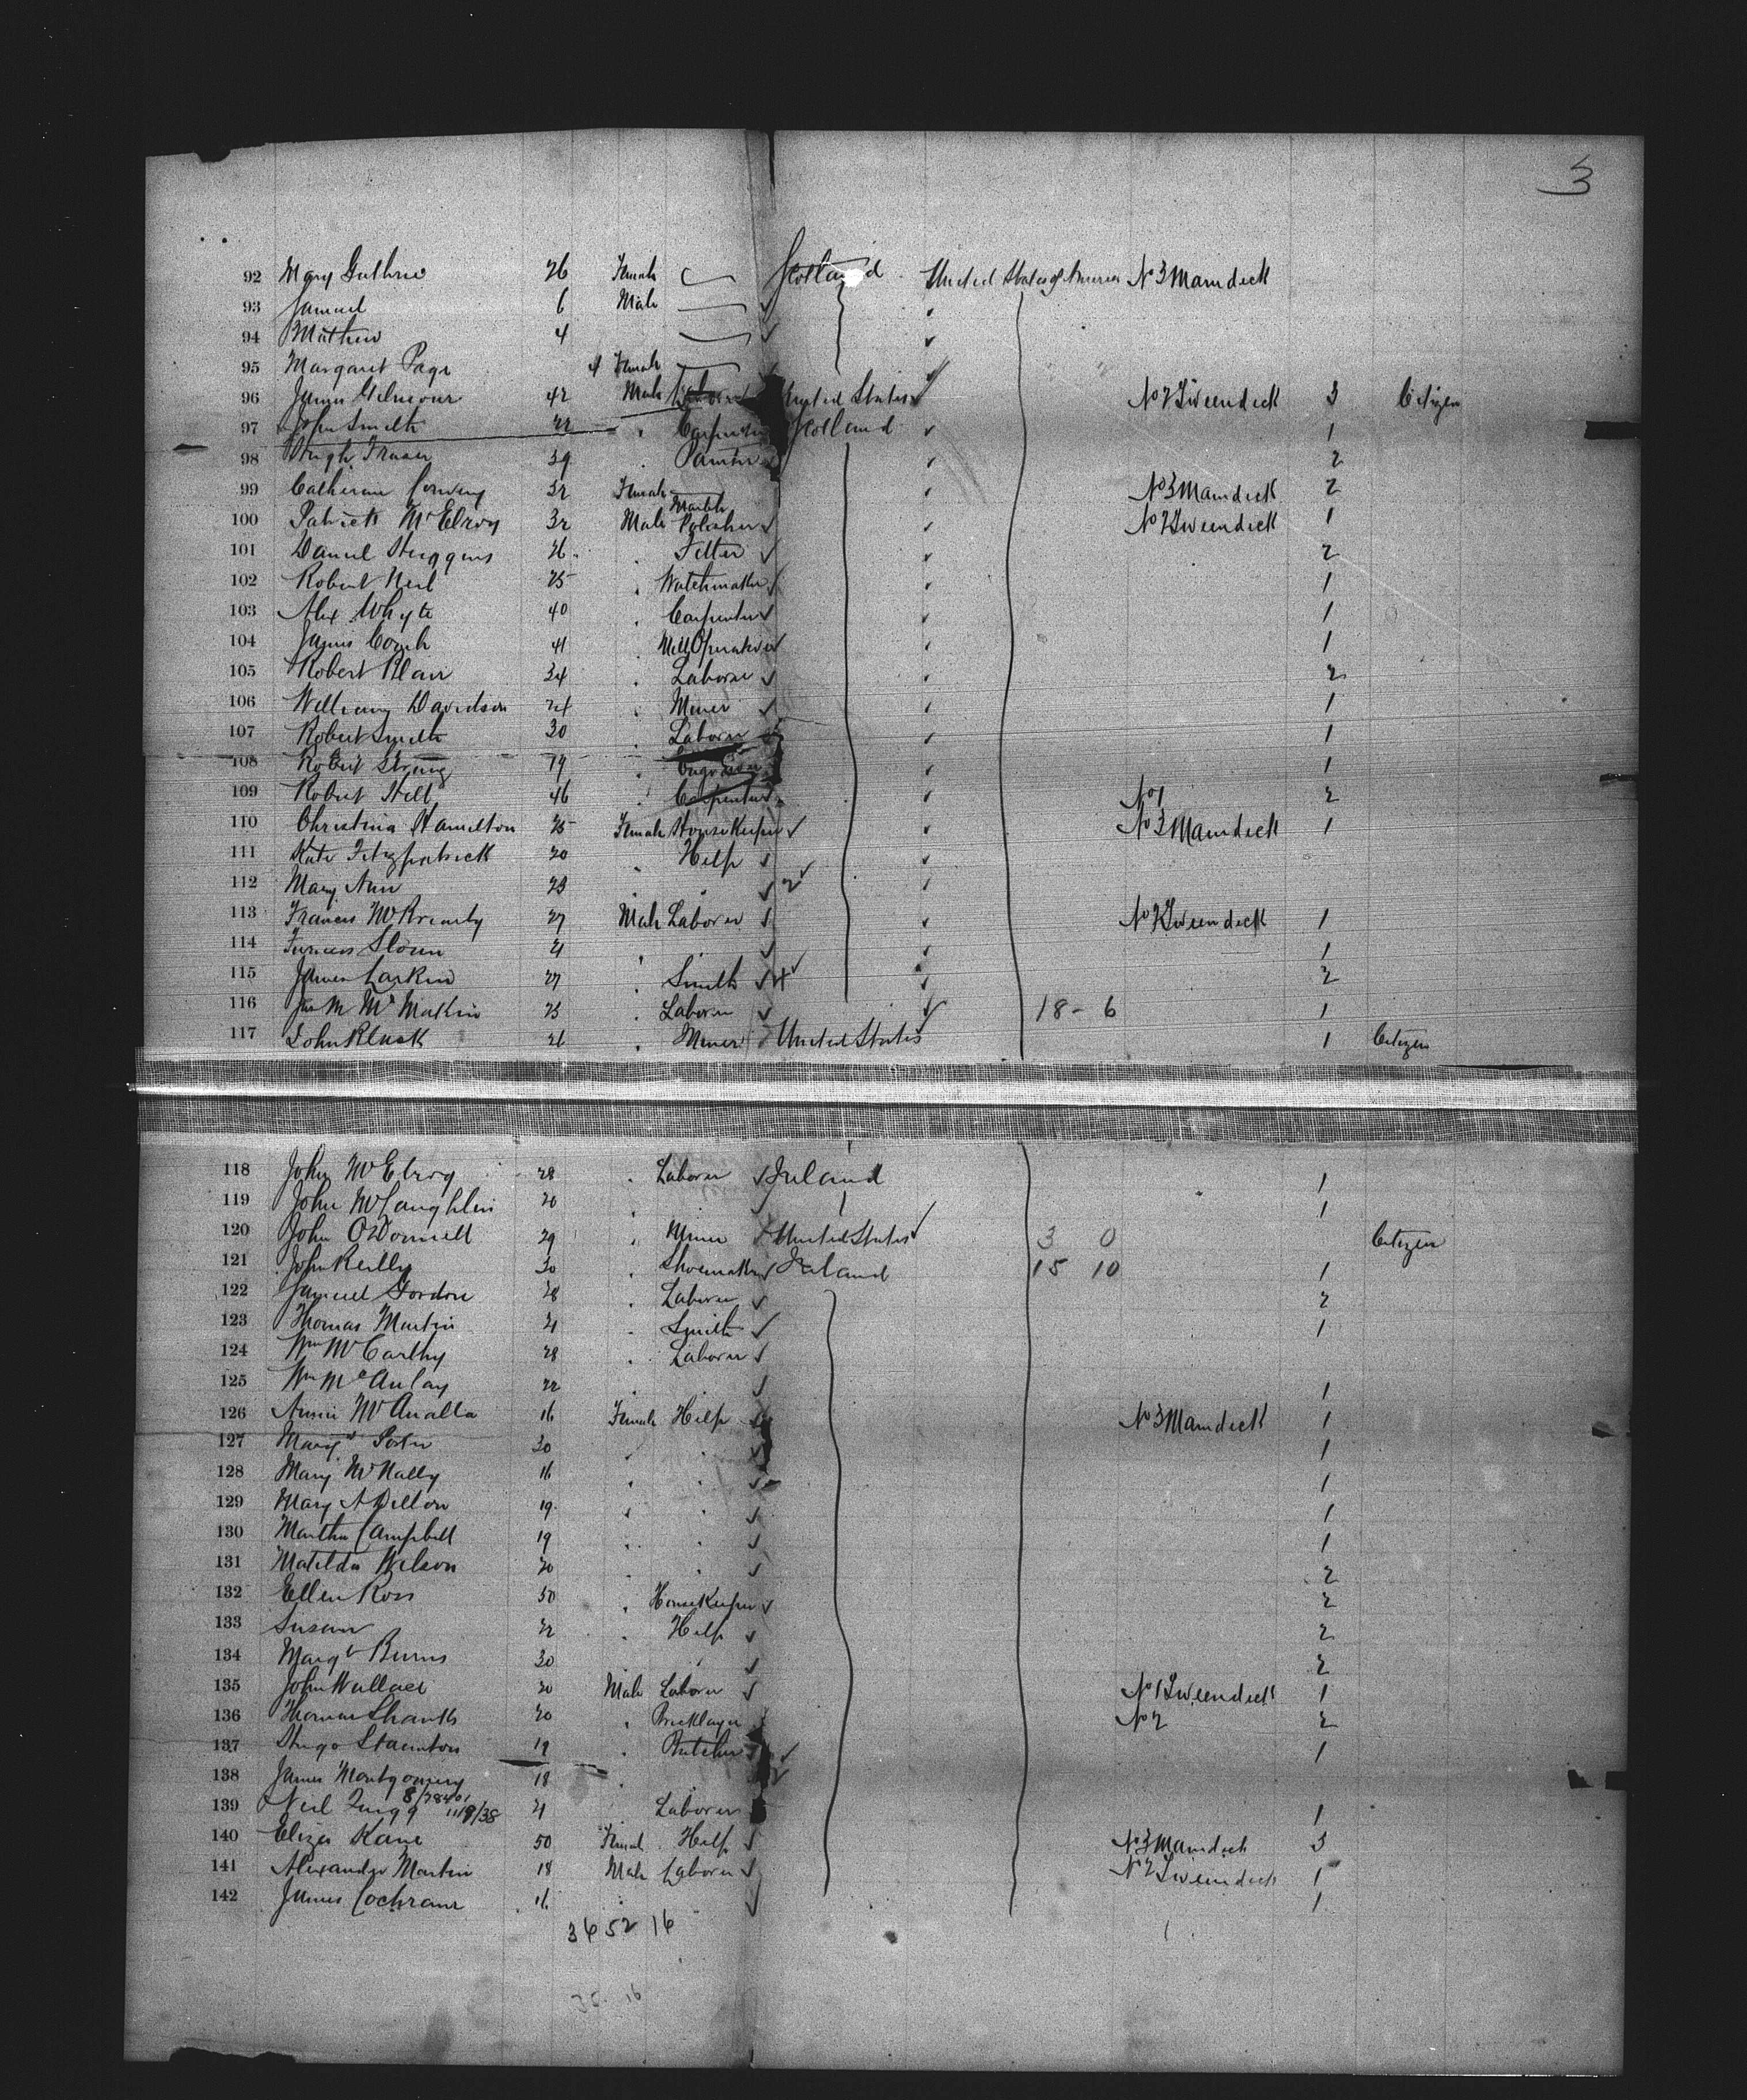 3
92 Mary Guthrie 26 Female Scotland United States of America No 3 Main deck
93 Samuel 6 Male
94 Mathew 4
95 Margaret Page 4 Female
96 James Gilmour 42 Male United States No 2 Tween deck 3 Citizen
97 John Smith 22 " Carpenter Scotland 1
98 Hugh Fraser 39 Painter 2
99 Catherine Conway 32 Female No 3 Main deck 2
100 Patrick McElroy 32 Male Marble Polisher No 2 Tween deck 1
101 Daniel Huggins 26 Fitter 2
102 Robert Neil 25 " Watchmaker 1
103 Alex Whyte 40 " Carpenter 1
104 James 41 " Mill Operative 1
105 Robert Blair 34 " Laborer 2
106 William Davidson 24 " Miner 1
107 Robert Smith 30 " Laborer 1
108 Robert Strang 19 " 1
109 Robert Still 46 " Carpenter No 1 2
110 Christina Hamilton 25 Female Housekeeper No 3 Main deck 1
111 Kate Fitzpatrick 20 " Help
112 Mary Ann 23 " " 2
113 Francis Male Laborer No 2 Tween deck 1
114 21 " 1
115 James Larkin 27 " Smith 4 2
116 Jas M McMakin 23 " Laborer 18 - 6 1
117 John 26 " Miner United States 1 Citizen
118 John McElroy 28 " Laborer Ireland 1
119 John McLaughlin 20 " " 1
120 John O'Donnell 29 " Miner United States 3 0 Citizen
121 John Reilly 30 " Shoemaker Ireland 15 10 1
122 Samuel Gordon 28 " Laborer 2
123 Thomas Martin 21 " Smith 1
124 Wm McCarthy 28 " Laborer
125 Wm McAulay 22 " " 1
126 Annie McAnalla 16 Female Help No 3 Main deck 1
127 Mary 30 " " 1
128 Mary McNally 16 " " 1
129 Mary A Dillon 19 " " 1
130 Martha Campbell 19 " " 1
131 Matilda Wilson 20 " " 2
132 Ellen Ross 50 " Housekeeper 2
133 Susan 22 " Help 2
134 Margt Burns 30 " 2
135 John Wallace 20 Male Laborer No 1 Tween deck 1
136 Thomas Shanks 20 " Bricklayer No 2 2
137 Hugo Staunton 19 " Butcher 1
138 James Montgomery 18 "
139 Neil 21 Laborer 1
140 Eliza Kane 50 Female Help No 3 Main deck 3
141 Alexander Martin 18 Male Laborer No 2 Tween deck 1
142 James Cochrane 16 " 1
36 52 16